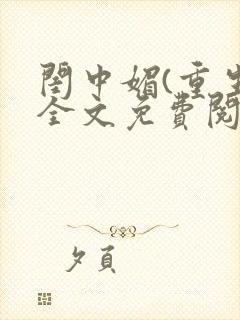 閨中媚(重生
全文免費閱
夕頁